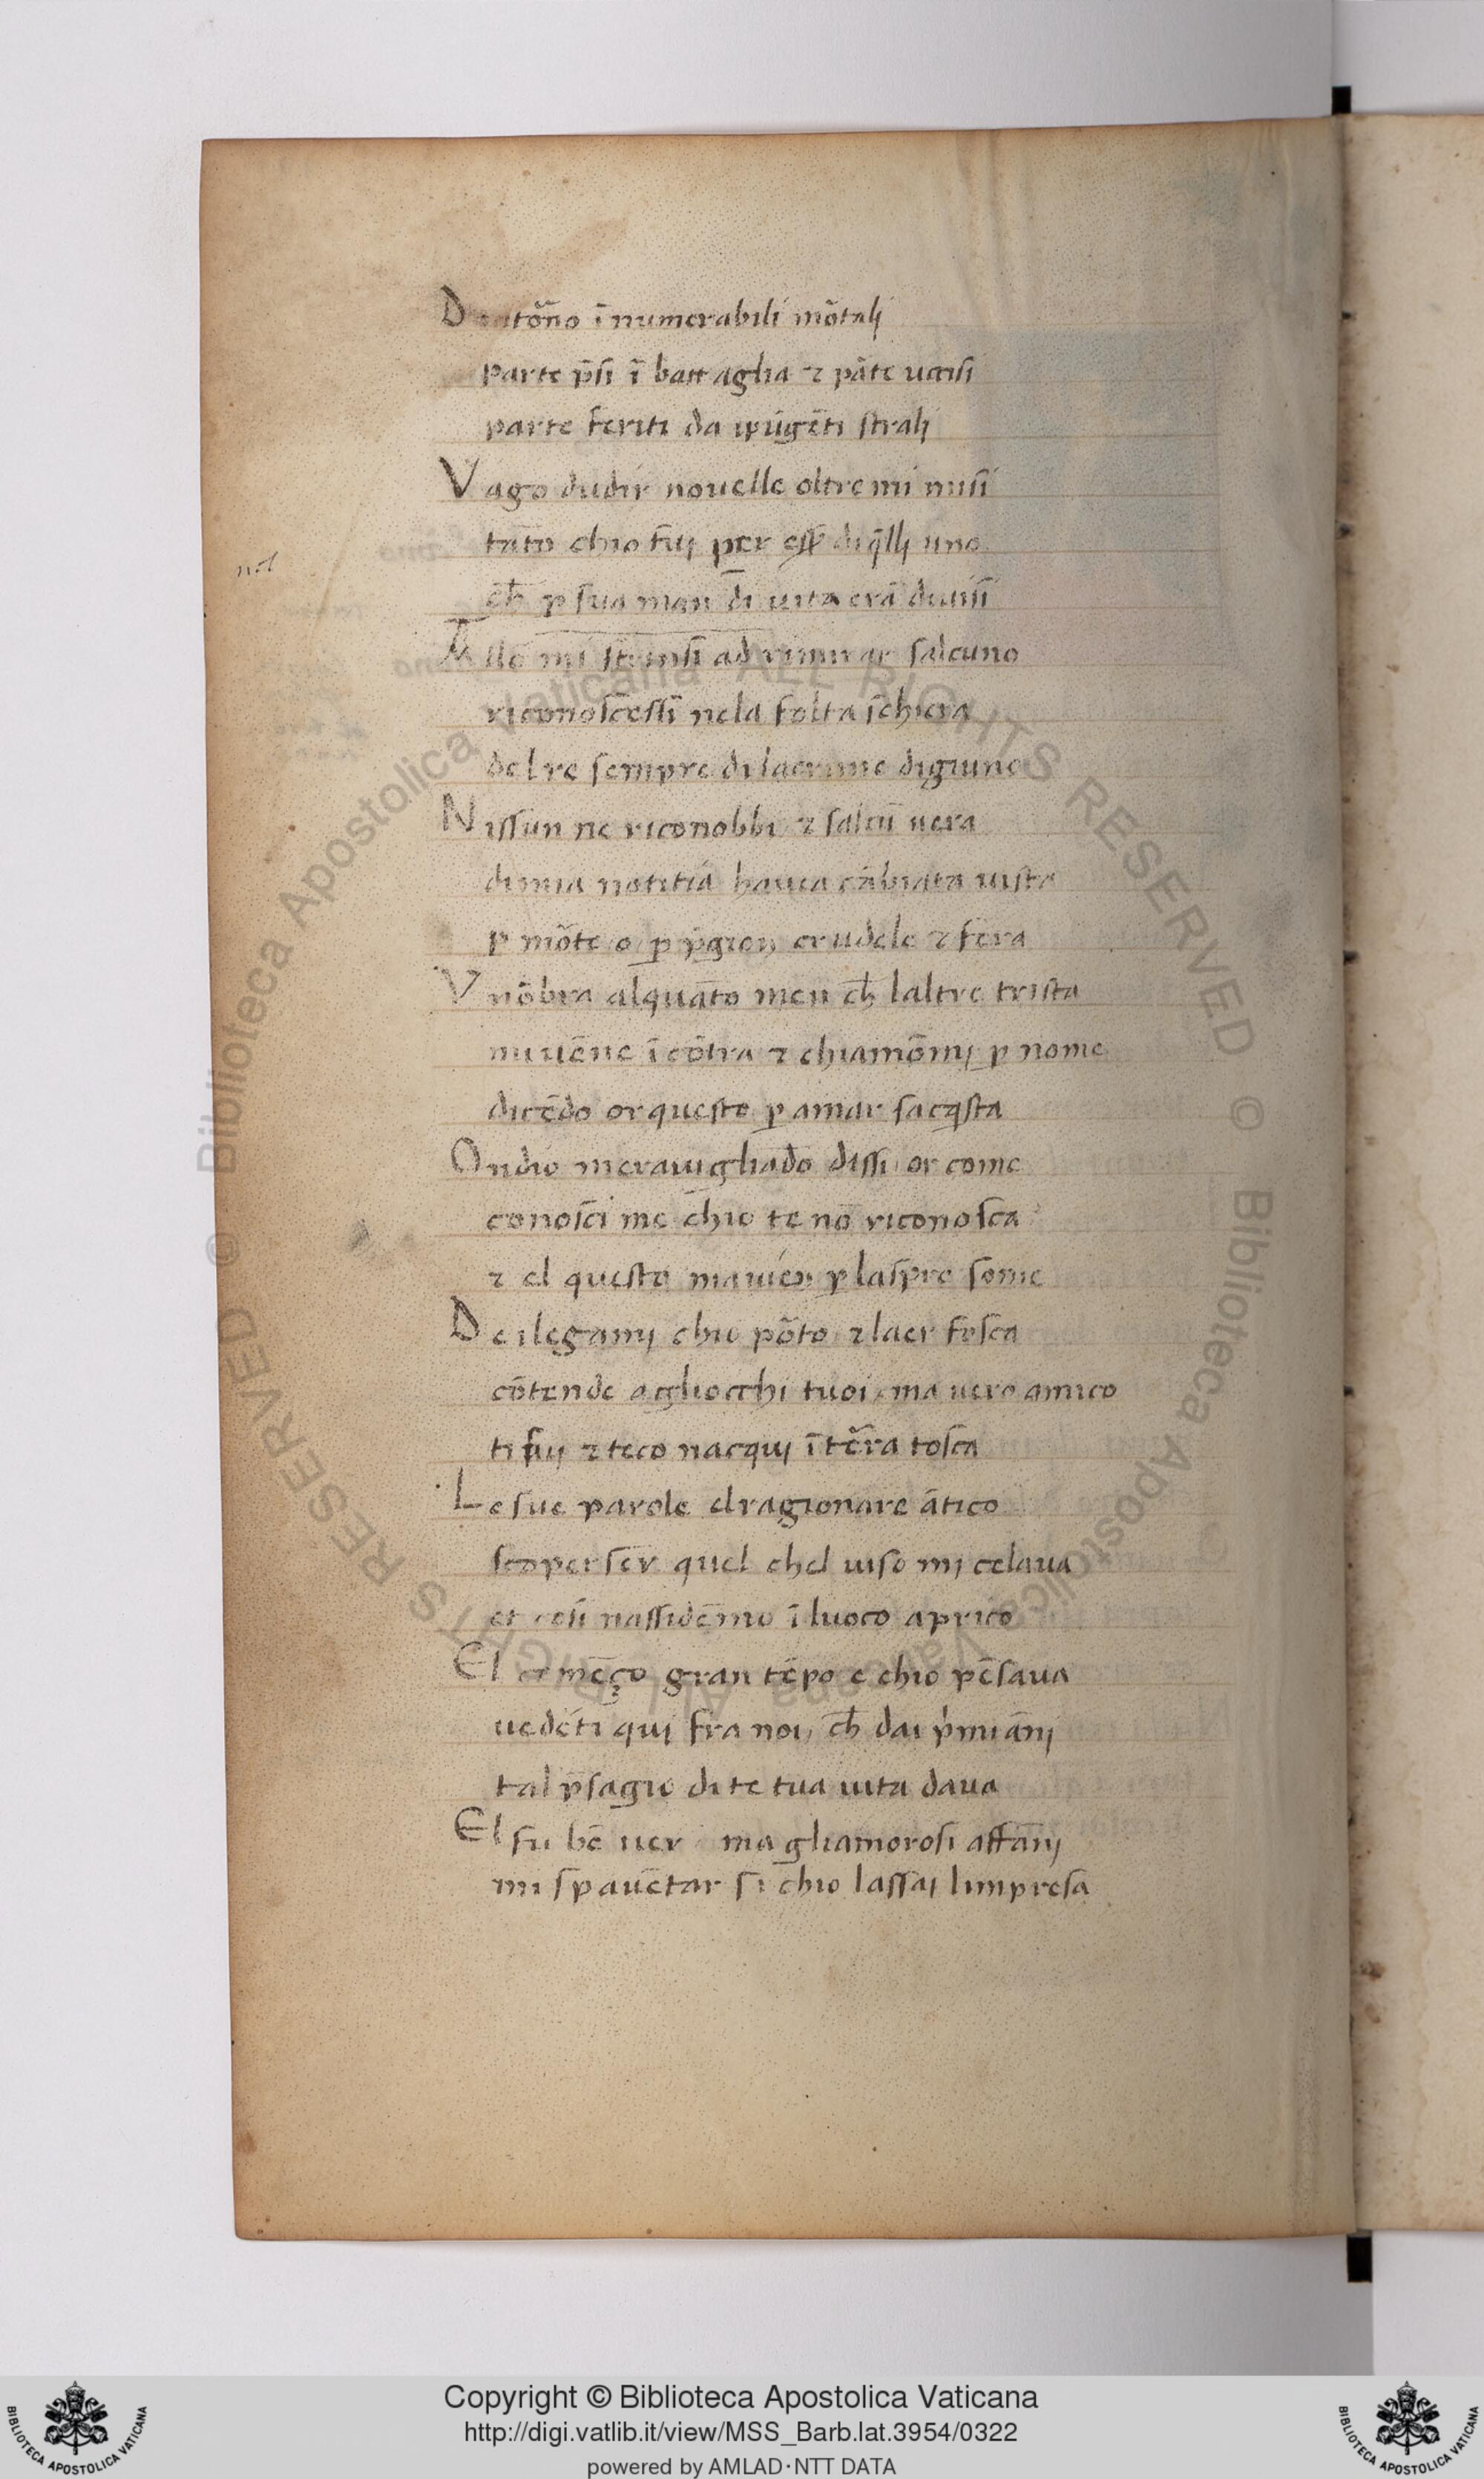 D intōno īnumerabili mõtalj
parte p̄si ī battaglia ⁊ pãte uccisi
parte feriti da ipūgẽti stralj
Vago dudir nouelle oltre mi misi
tāto chio fuj per eẜẜ di q̄llj uno
ch̄ ꝑ sua man di uita erã diuisi
Allo mi strinsi ad rimirar salcuno
riconoscessi nela folta schiera
del re sempre di lacrime digiuno
Nissun ne riconobbi ⁊ salcū uera
di mia notitia hauea cābiata uista
ꝑ mõte o ꝑ p̄gion crudele ⁊ fera
Vnõbra alquāto men ch̄ laltre trista
mi uēne īcōtra ⁊ chiamōmj ꝑ nome
dicēdo or questo ꝑ amar sacq̄sta
Ondio merauigliādo dissi or come
conosci me chio te nō riconosca
⁊ el questo mauien ꝑ laspre some
De i legamj chio põto ⁊ laer fosca
cōtende agliocchi tuoi ma uero amico
ti fuj ⁊ teco nacquj ī tẽra tosca
Le sue parole el ragionare ātico
scoperser quel chel uiso mj celaua
et cosi nassidēmo ī luoco aprico
El comēço gran tēpo e chio pēsaua
uedēti quj fra noi ch̄ dai p̍mi ānj
tal p̄sagio di te tua uita daua
El fu bē uer ma gliamorosi affānj
mi spauētar si chio lassaj limpresa
Copyright © Biblioteca Apostolica Vaticana
http://digi.vatlib.it/view/MSS_Barb.lat.3954/0322
powered by AMLAD·NTT DATA
BIBLIOTECA APOSTOLICA VATICANA
BIBLIOTECA APOSTOLICA VATICANA
© Biblioteca Apostolica Vaticana ALL RIGHTS RESERVED
© Biblioteca Apostolica Vaticana ALL RIGHTS RESERVED